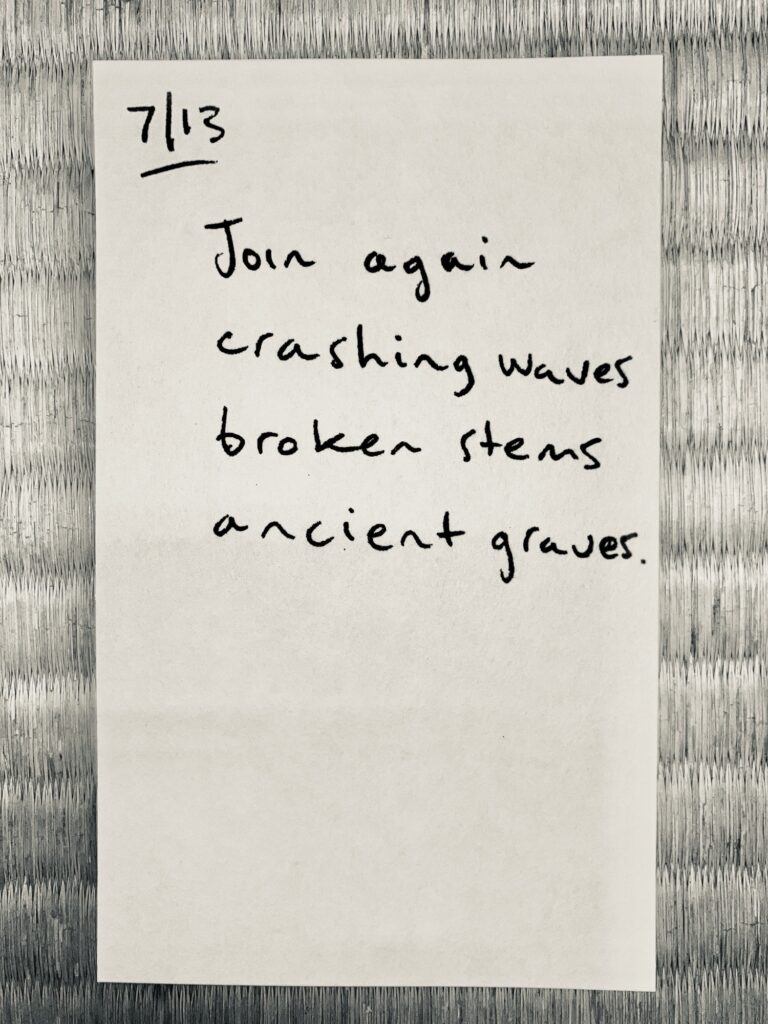 7/13
Join again
crashing waves
broken stems
ancient graves.